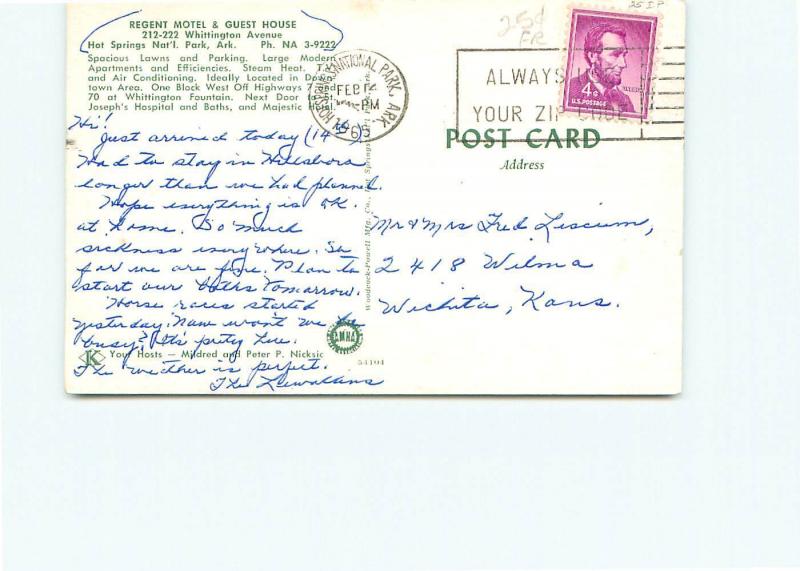 25 I.P
25¢
FR
REGENT MOTEL & GUEST HOUSE
212-222 Whittington Avenue
Hot Springs Nat'l. Park, Ark. Ph. NA 3-9222
Spacious Lawns and Parking. Large Modern
Apartments and Efficiencies. Steam Heat. T.V.
and Air Conditioning. Ideally Located in Down-
town Area. One Block West Off Highways 7 and
70 at Whittington Fountain. Next Door to St.
Joseph's Hospital and Baths, and Majestic Hotel.
Hi!
Just arrived today (14th).
Had to stay in Hillsboro
longer than we had planned.
Hope everything is OK.
at home. So much
sickness everywhere. So
far we are fine. Plan to
start our baths tomorrow.
Horse races started
yesterday. Now won't we be
busy? It's pretty here.
Your Hosts — Mildred and Peter P. Nicksic
The weather is perfect.
The Lewallens
HOT SPRINGS NATIONAL PARK, ARK.
FEB 14
PM
ALWAYS USE
YOUR ZIP CODE
4¢
U.S. POSTAGE
LINCOLN
POST CARD
Address
Mr & Mrs Fred Liscum,
2418 Wilma
Wichita, Kans.
Woodcock-Powell Mfg. Co., Hot Springs
AMHA
K
54104